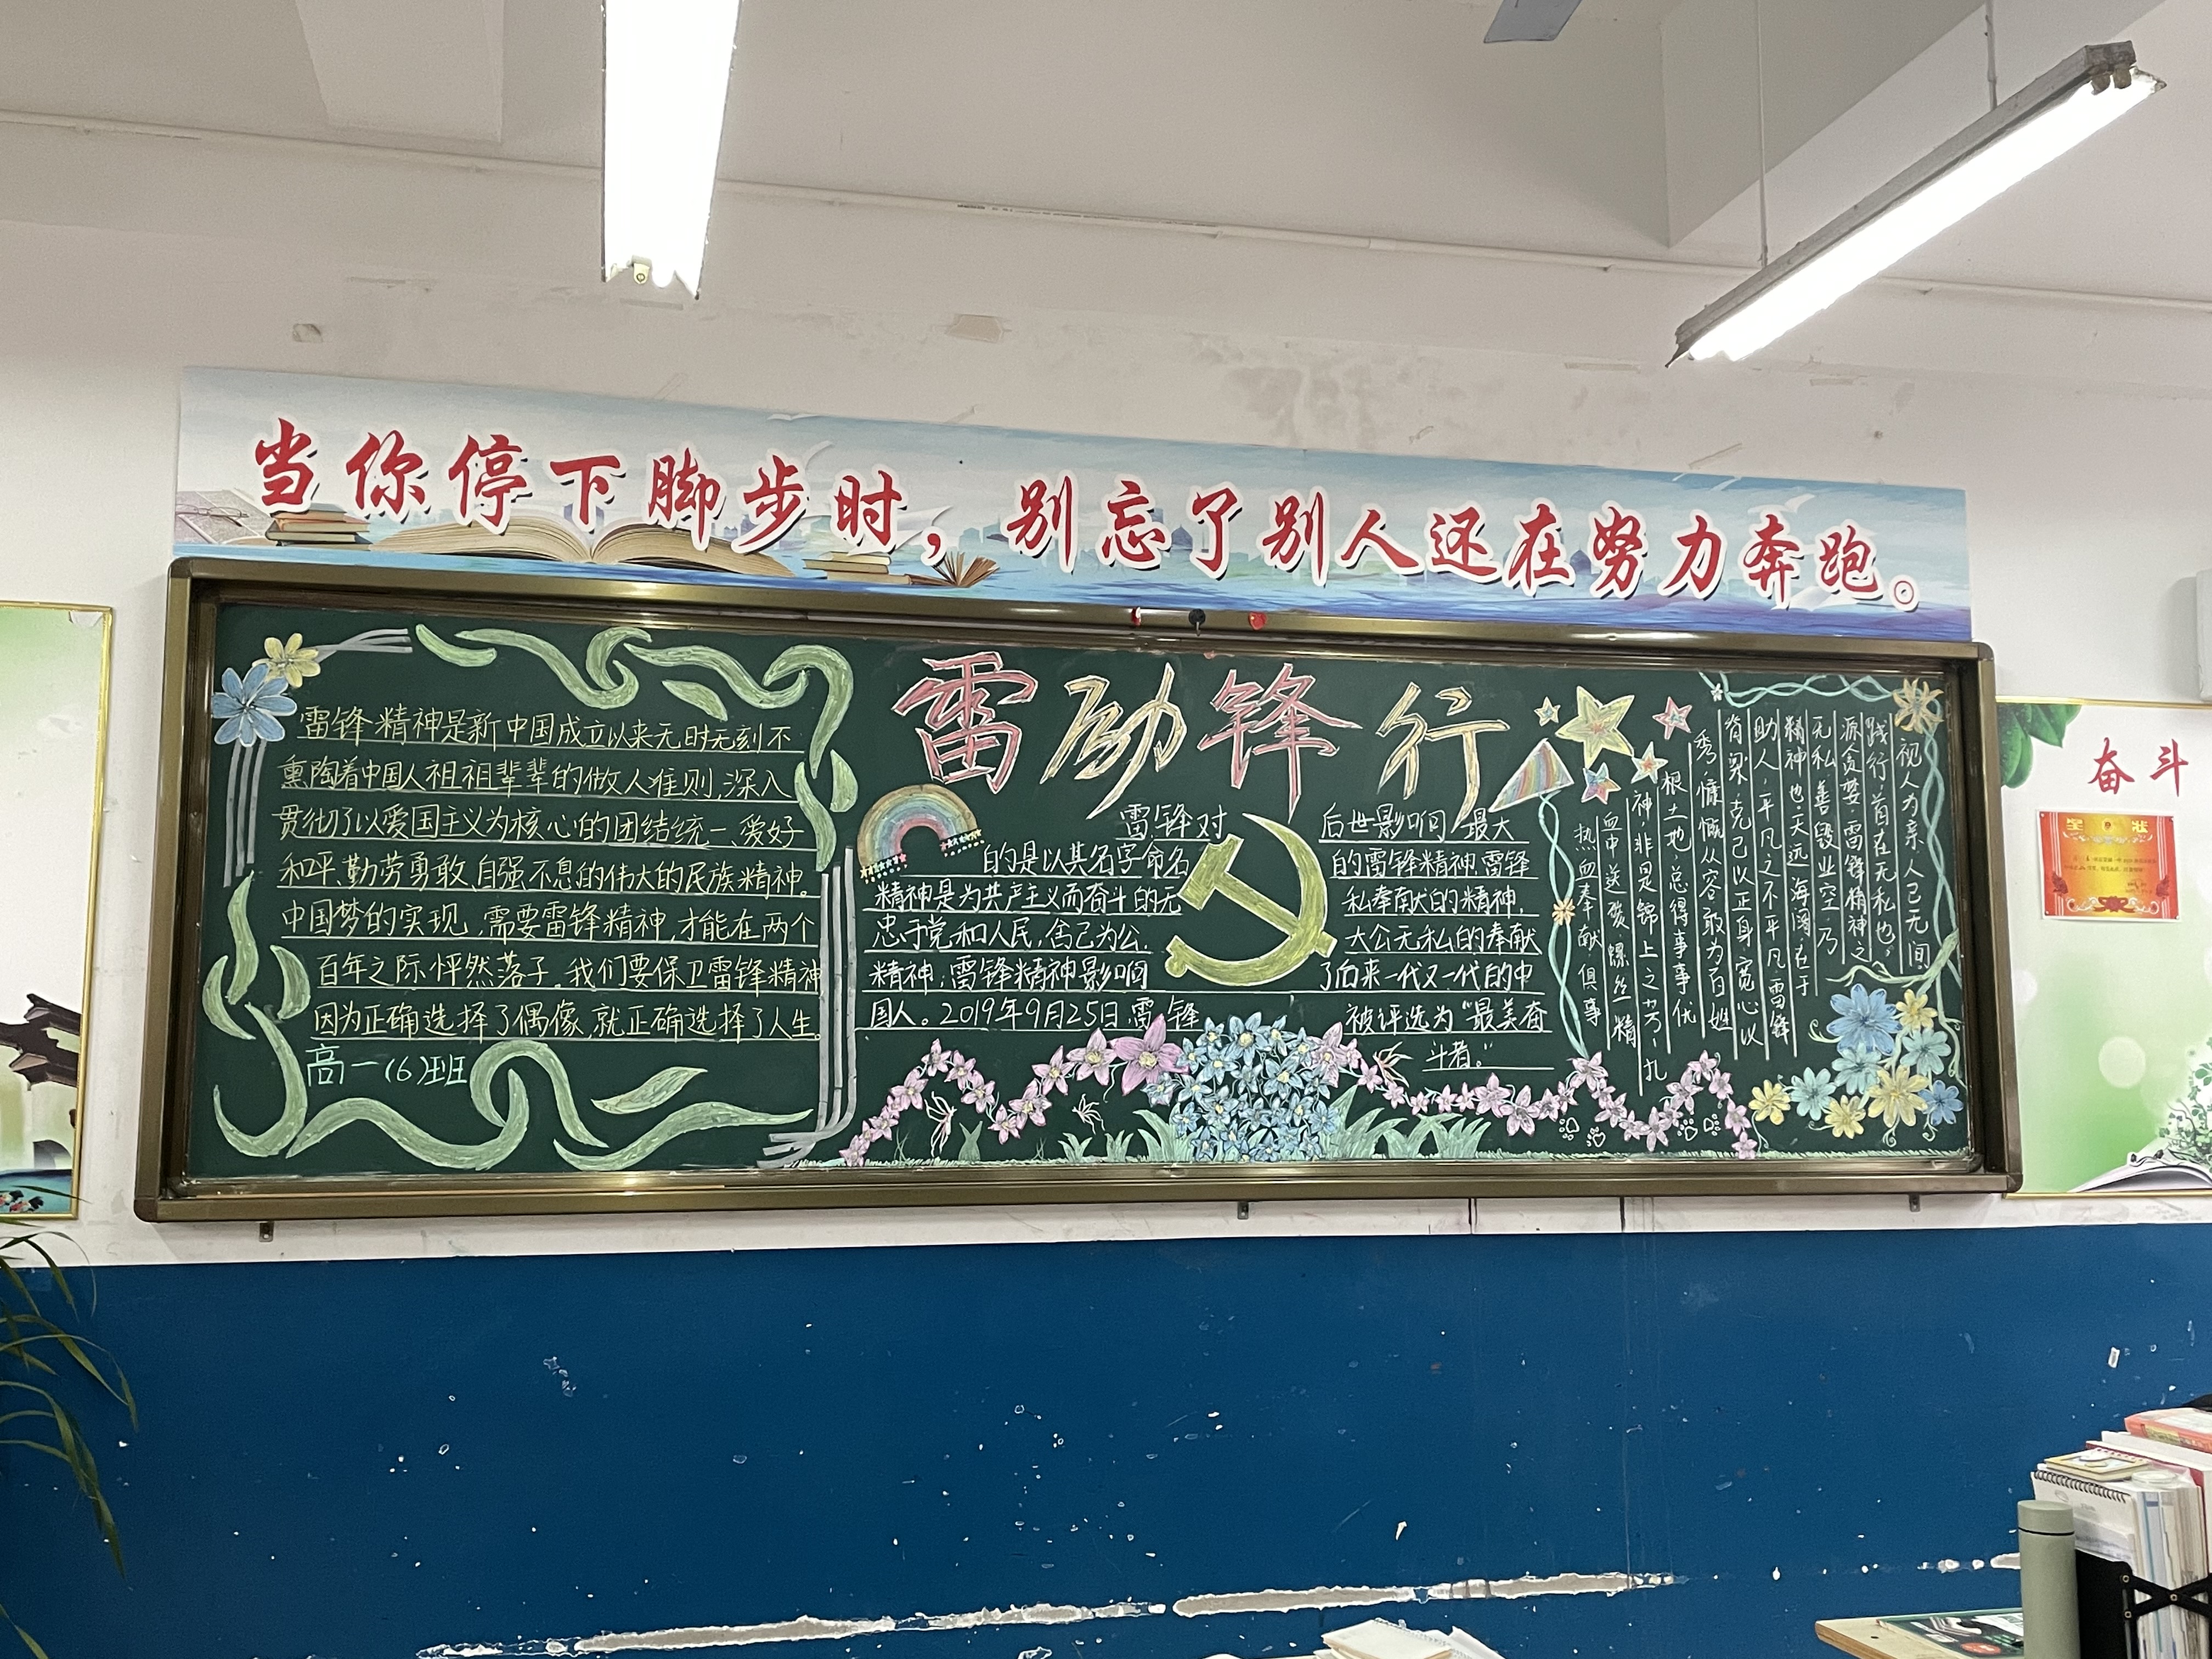 当你停下脚步时，别忘了别人还在努力奔跑。
雷励锋行
雷锋精神是新中国成立以来无时无刻不
熏陶着中国人祖祖辈辈的做人准则,深入
贯彻了以爱国主义为核心的团结统一、爱好
和平、勤劳勇敢、自强不息的伟大的民族精神。
中国梦的实现,需要雷锋精神,才能在两个
百年之际,怦然落子。我们要保卫雷锋精神
因为正确选择了偶像,就正确选择了人生。
高一(6)班
雷锋对 后世影响 最大
的是以其名字命名 的雷锋精神.雷锋
精神是为共产主义而奋斗的无 私奉献的精神,
忠于党和人民,舍己为公, 大公无私的奉献
精神;雷锋精神影响 了后来一代又一代的中
国人。2019年9月25日,雷锋 被评选为“最美奋
斗者。”
视人为亲,人己无间
践行,首在无私也,
无私,善毁业空,乃
精神也,天远,海阔,在于
助人,平凡之不平凡,雷锋
脊梁,克己以正身,宽心以
秀,慷慨从容,敢为百姓
根土地,总得事事优
神,非是锦上之芳,扎
血中送暖,螺丝精
热血奉献,俱事
奋斗
奖状